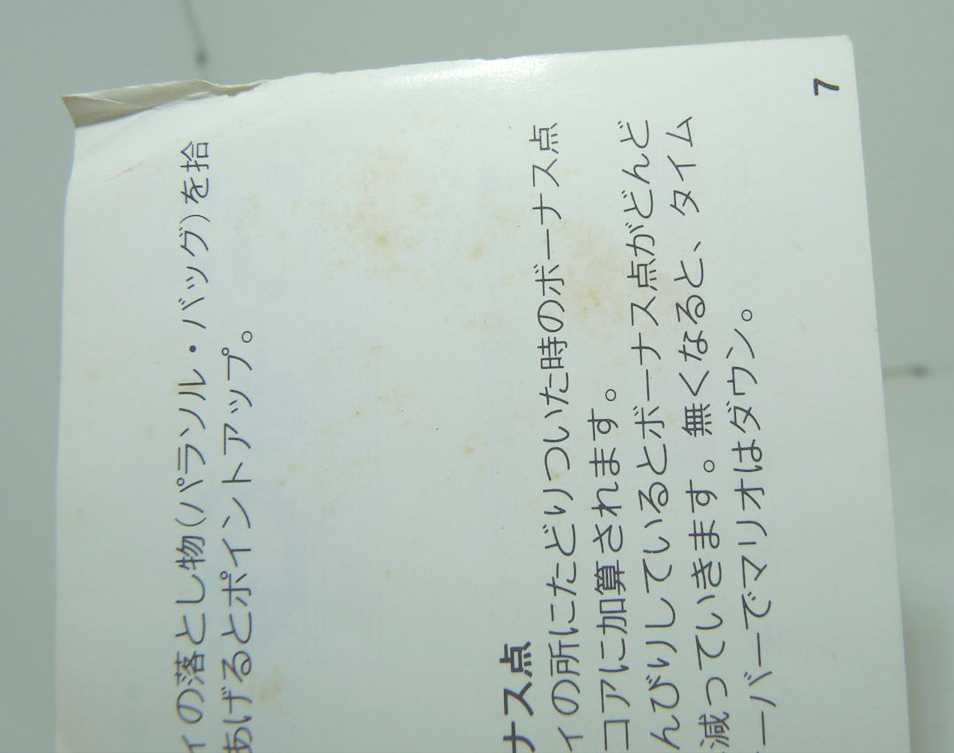 ィの落とし物(パラソル・バッグ)を拾
あげるとポイントアップ。
ナス点
ィの所にたどりついた時のボーナス点
コアに加算されます。
んびりしているとボーナス点がどんど
減っていきます。無くなると、タイム
ーバーでマリオはダウン。
7